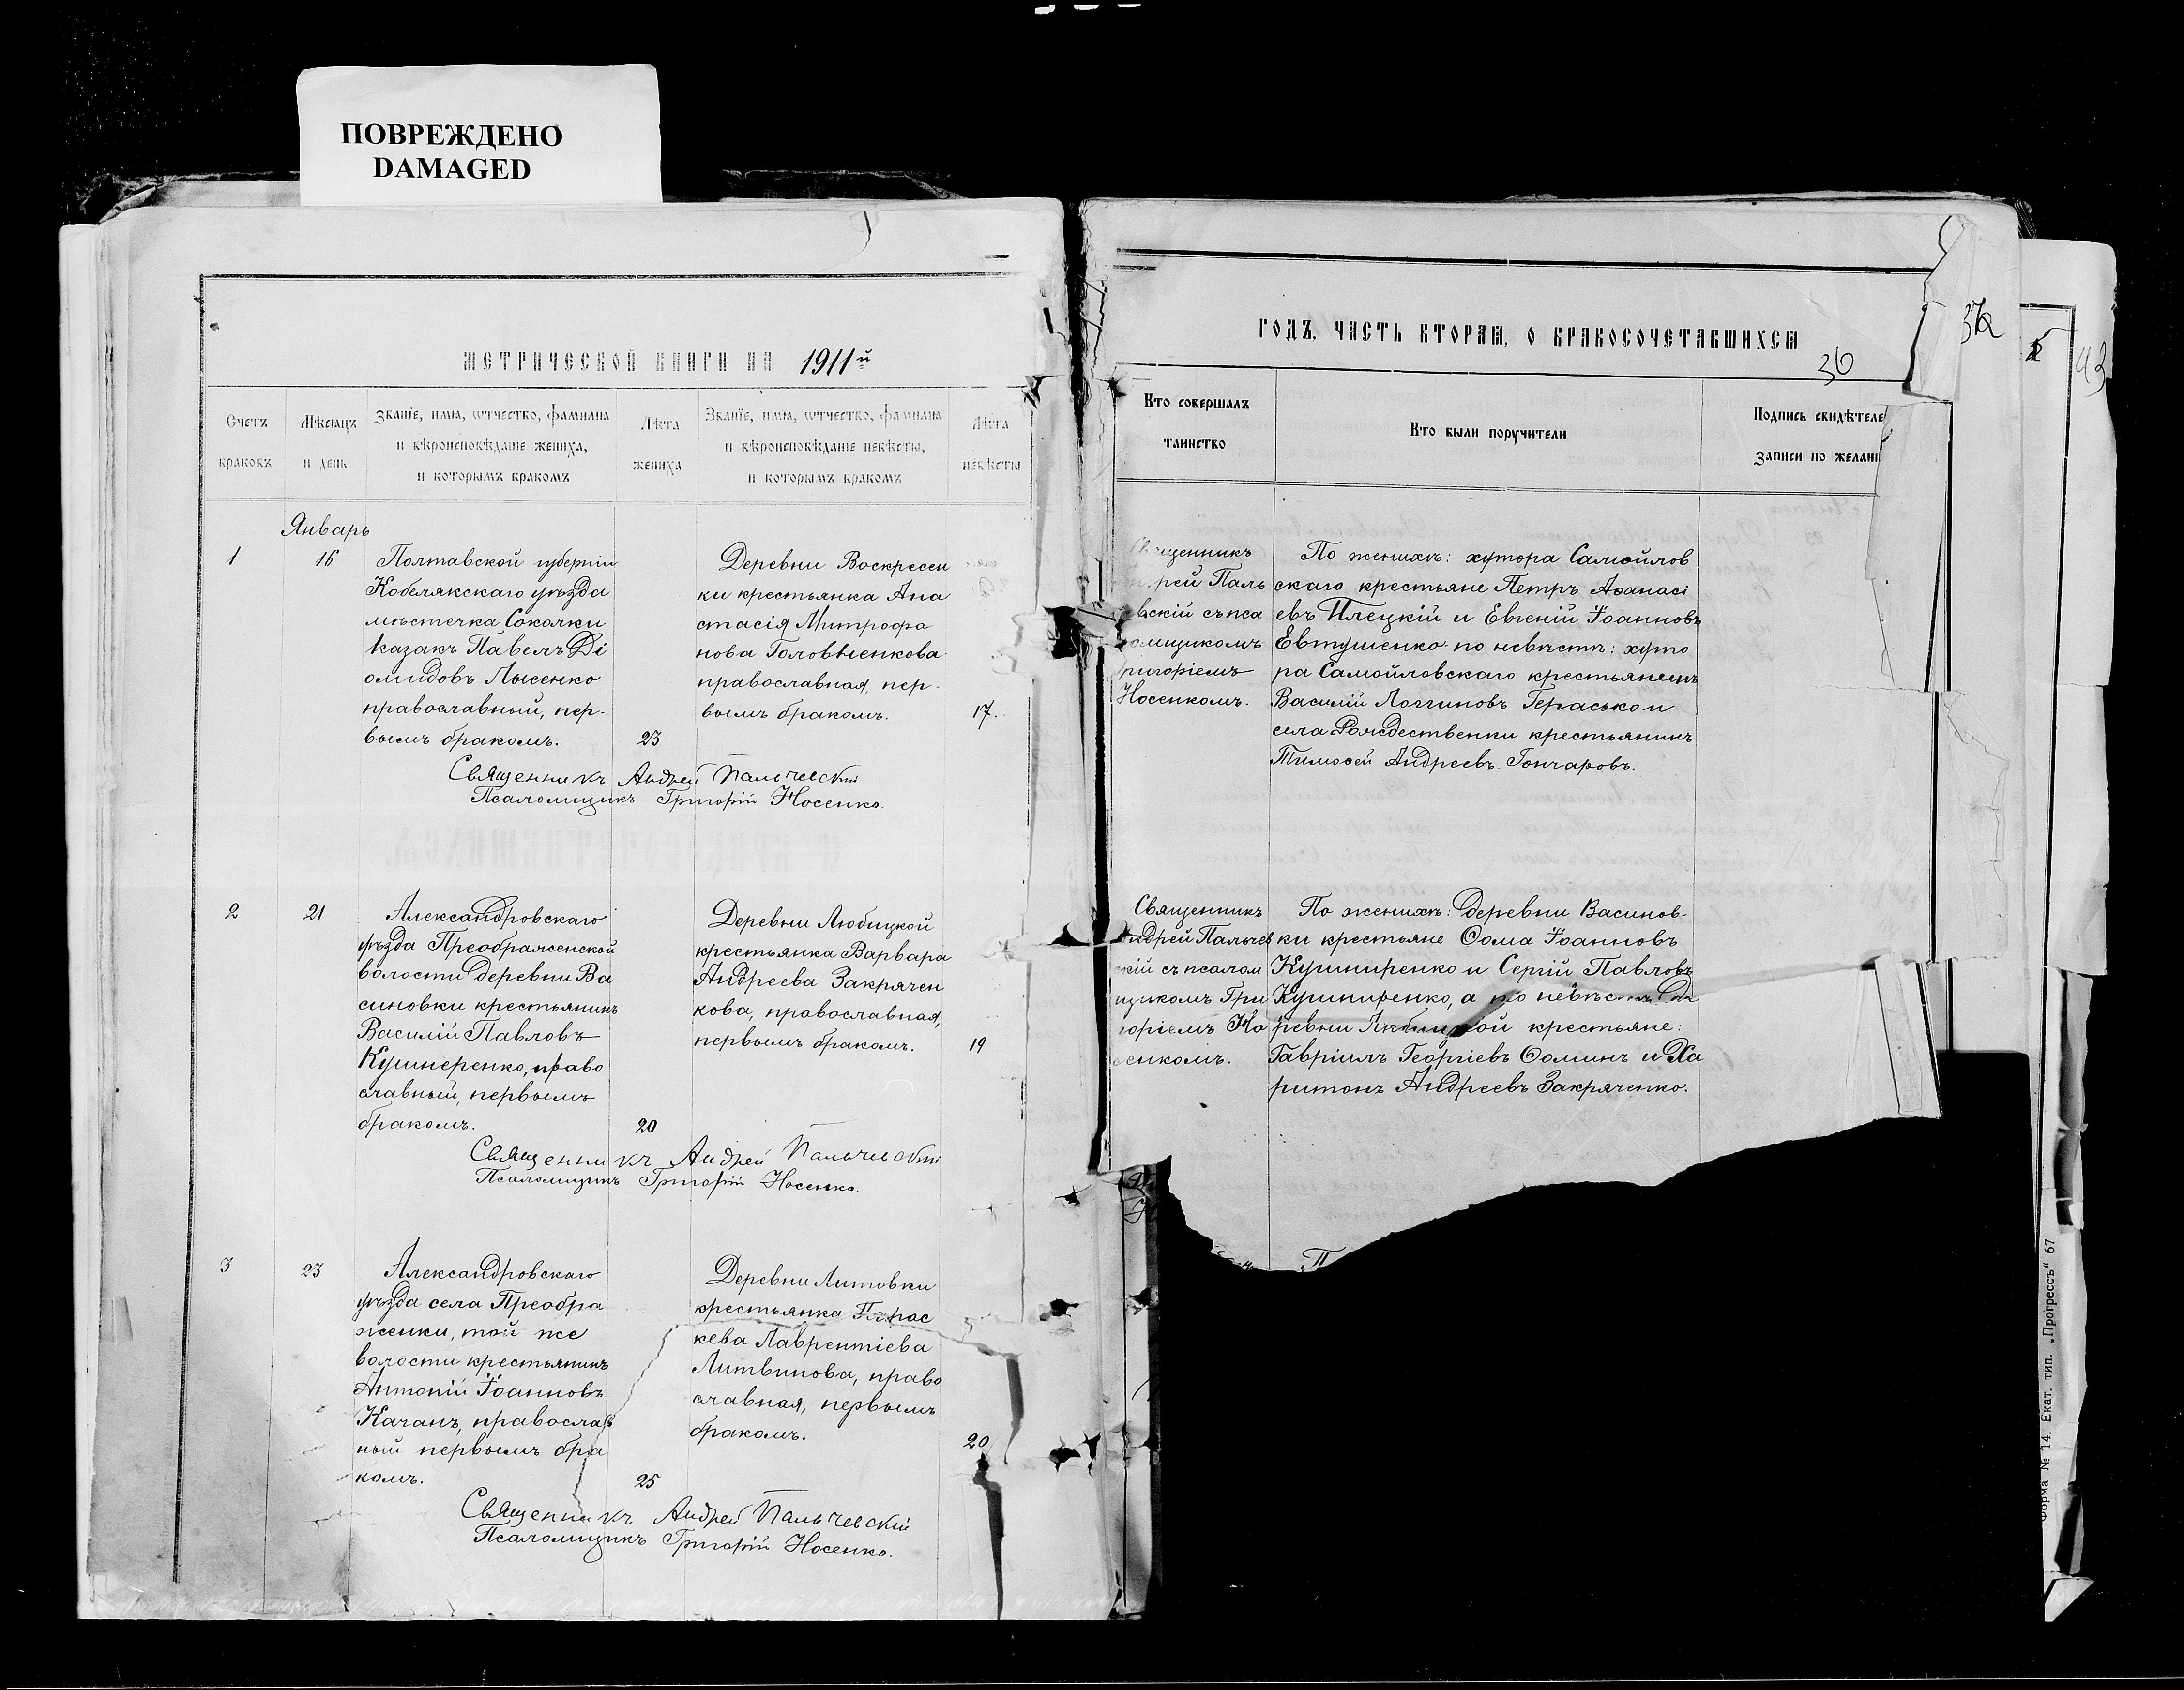 ПОВРЕЖДЕНО
DAMAGED
МЕТРИЧЕСКОЙ КНИГИ НА 1911й
Счетъ браковъ
Мѣсяцъ и день
Званіе, имя, отчество, фамилія и вѣроисповѣданіе жениха, и которымъ бракомъ
Лѣта жениха
Званіе, имя, отчество, фамилія и вѣроисповѣданіе невѣсты, и которымъ бракомъ
Лѣта невѣсты
Январь
1
16
Полтавской губерніи
Кобелякскаго уѣзда
мѣстечка Соколки
казакъ Павелъ Ді
омидовъ Лысенко
православный, пер-
вымъ бракомъ.
23
Деревни Воскресен
ки крестьянка Ана
стасія Митрофа
нова Головненкова
православная, пер-
вымъ бракомъ.
17.
Священникъ Андрей Пальчевскій
Псаломщикъ Григорій Носенко.
2
21
Александровскаго
уѣзда Преображенской
волости деревни Ва
синовки крестьянинъ
Василій Павловъ
Кушнеренко, право
славный, первымъ
бракомъ.
20
Деревни Любицкой
крестьянка Варвара
Андреева Закрячен
кова, православная,
первымъ бракомъ.
19
Священникъ Андрей Пальчевскій
Псаломщикъ Григорій Носенко.
3
23
Александровскаго
уѣзда села Преобра
женки, той же
волости крестьянинъ
Антоній Іоанновъ
Качанъ, православ
ный первымъ бра
комъ.
25
Деревни Литовки
крестьянка Парас
кева Лаврентіева
Литвинова, право
славная, первымъ
бракомъ.
20
Священникъ Андрей Пальчевскій
Псаломщикъ Григорій Носенко.
ГОДЪ, ЧАСТЬ ВТОРАЯ, О БРАКОСОЧЕТАВШИХСЯ
36
Кто совершалъ таинство
Кто были поручители
Подпись свидѣтеле
записи по желані
Священникъ
рей Паль
евскій съ пса
омщикомъ
ригоріемъ
Носенкомъ.
По женихѣ: хутора Самойлов
скаго крестьяне Петръ Аѳанасі
евъ Илецкій и Евгеній Іоанновъ
Евтушенко по невѣстѣ: хуто
ра Самойловскаго крестьянинъ
Василій Логгиновъ Гераско и
села Рождественки крестьянинъ
Тимоѳей Андреевъ Гончаровъ.
Священникъ
Андрей Пальчев
скій съ псалом
щикомъ Гри
горіемъ Но
сенкомъ.
По женихѣ: деревни Васинов-
ки крестьяне Ѳома Іоанновъ
Кушниренко и Сергій Павловъ
Кушниренко, а по невѣстѣ де
ревни Любицкой крестьяне:
Гавріилъ Георгіевъ Ѳоминъ и Ха
ритонъ Андреевъ Закряченко.
П
43
Форма № 14. Екат. тип. „Прогрессъ“ 67